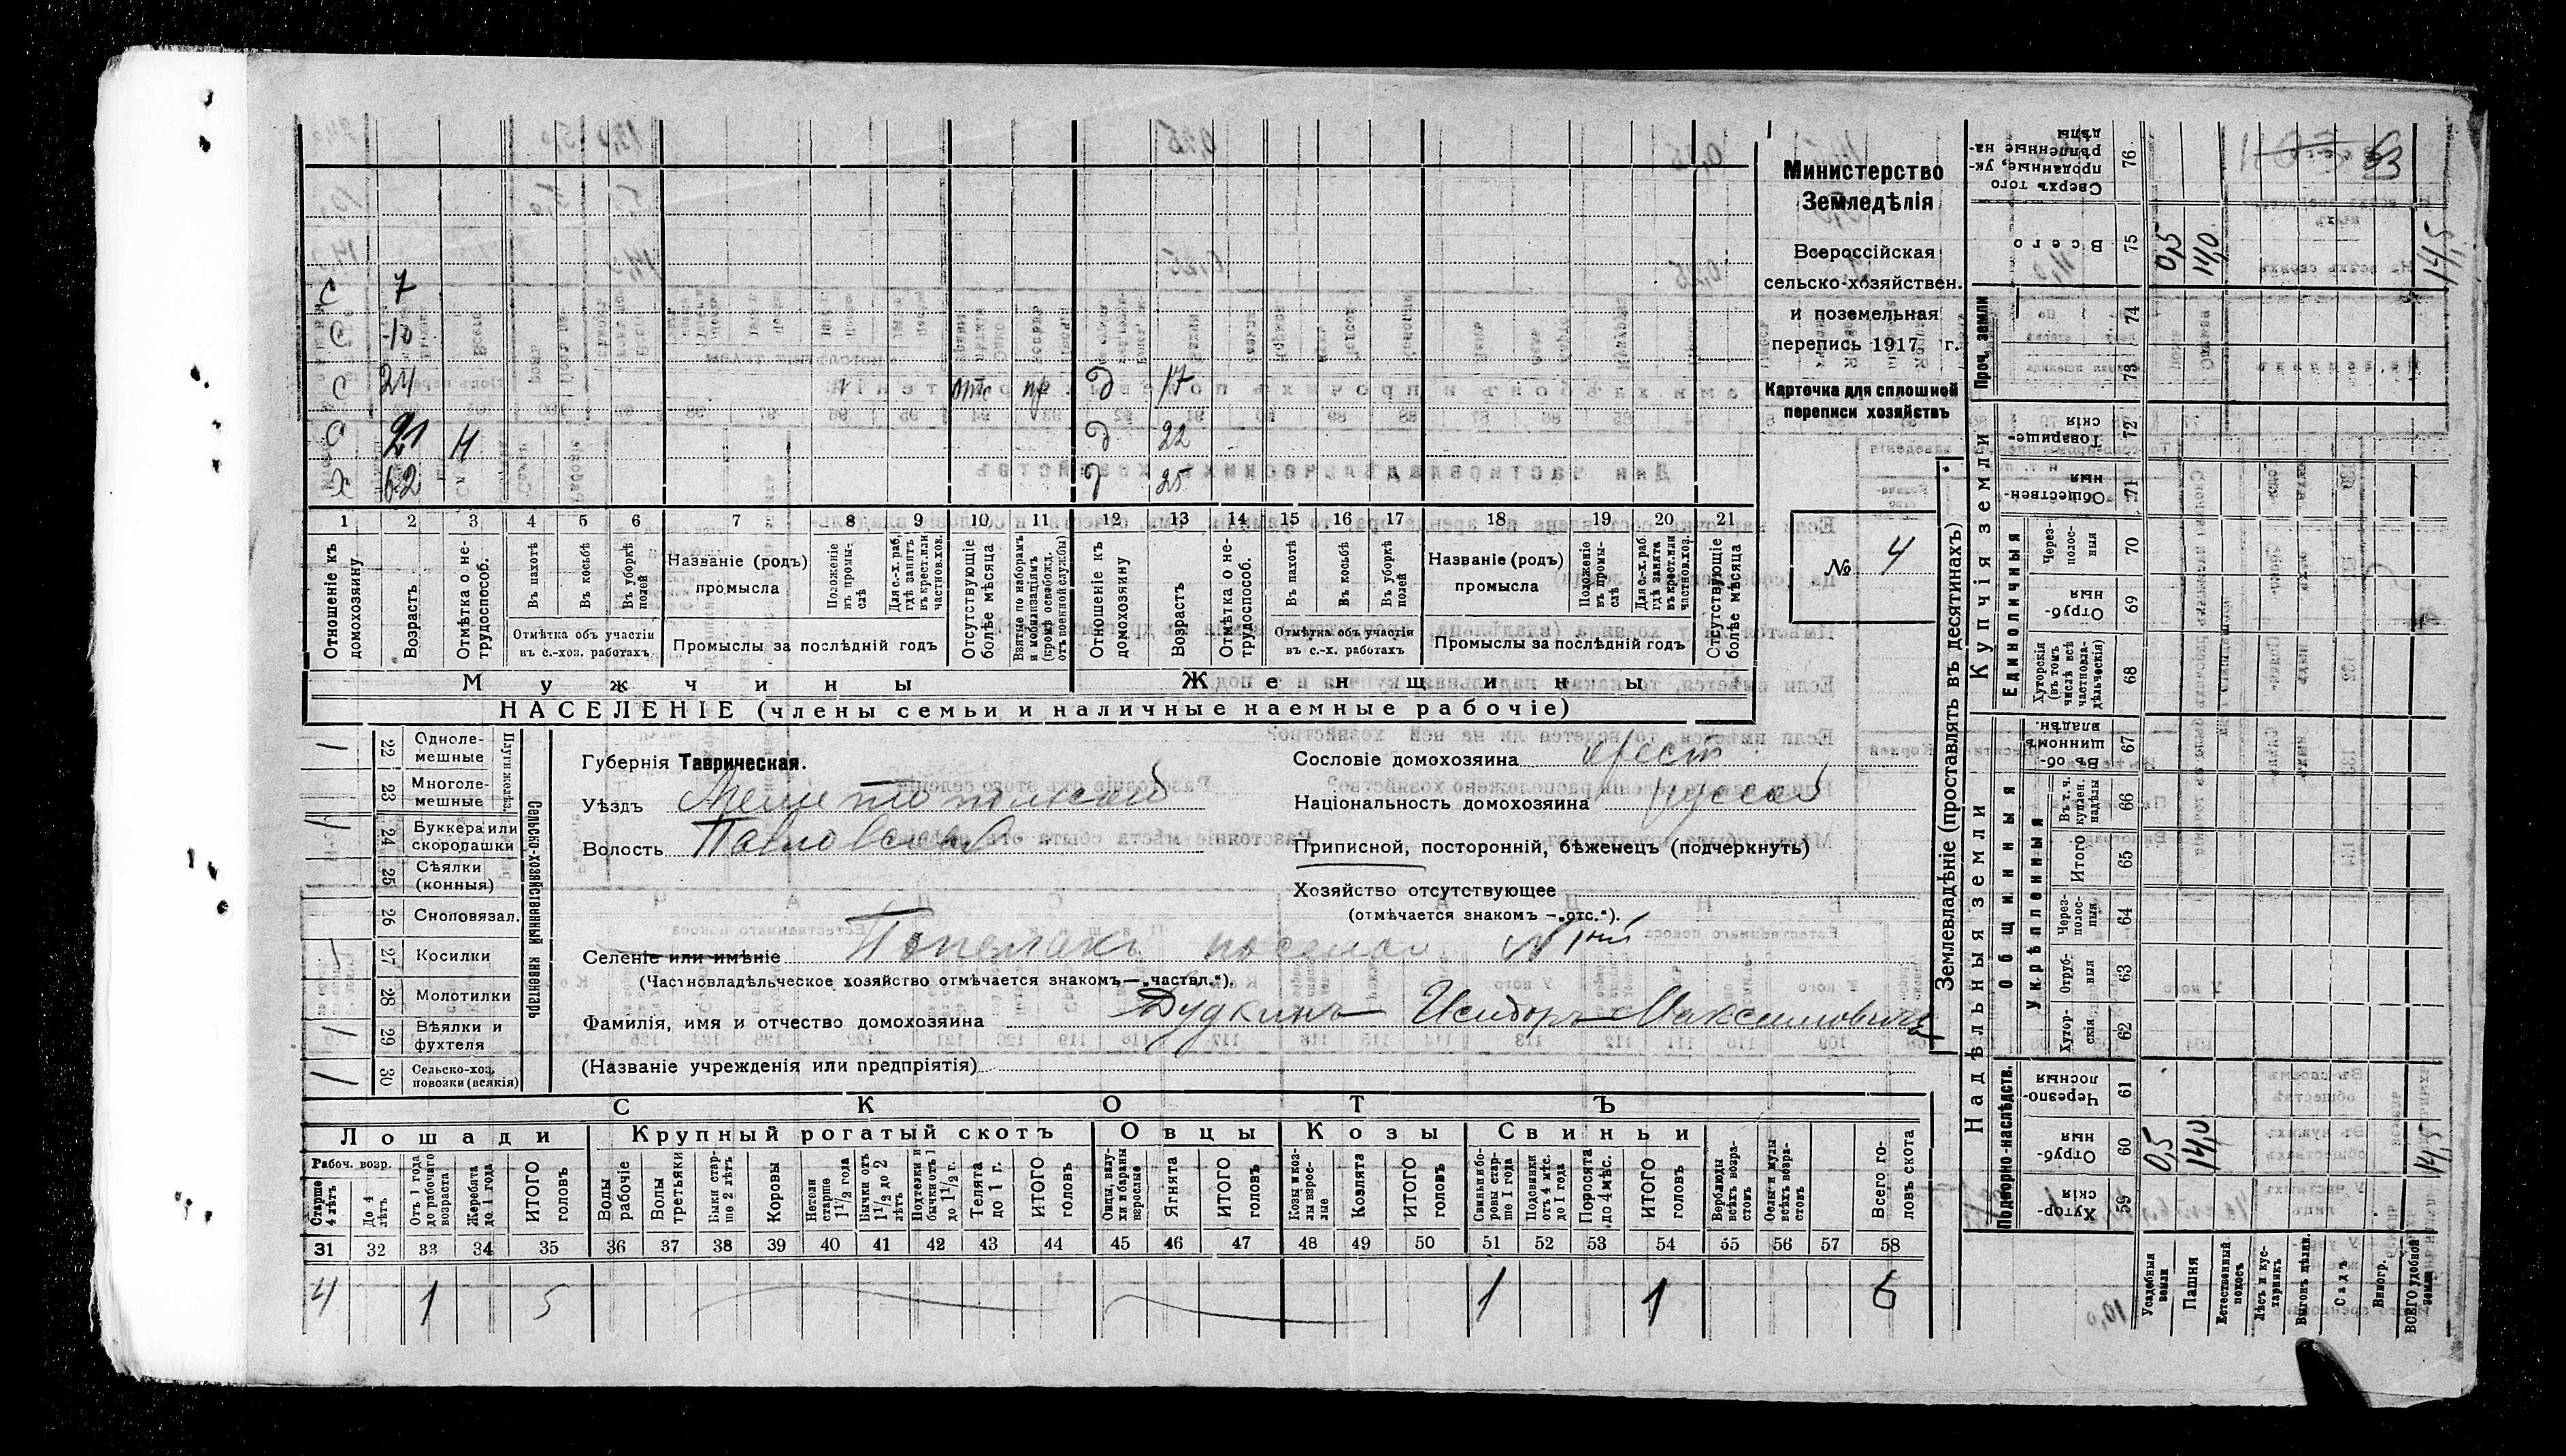 Министерство
Земледѣлія
Всероссійская
сельско-хозяйствен.
и поземельная
перепись 1917 г.
Карточка для сплошной
переписи хозяйствъ
№ 4
С 7
С 10
С 24 отс пр д 17
С 21 Н д 22
Х 62 д 25
1 2 3 4 5 6 7 8 9 10 11 12 13 14 15 16 17 18 19 20 21
Отношеніе къ домохозяину
Возрастъ
Отмѣтка о не-трудоспособ.
Въ пахотѣ
Въ косьбѣ
Въ уборкѣ полей
Отмѣтка объ участіи въ с.-хоз. работахъ
Названіе (родъ) промысла
Положеніе въ промы-слѣ
Для с.-х. раб. гдѣ занятъ въ крест. или частнов. хоз.
Промыслы за послѣдній годъ
Отсутствующіе болѣе мѣсяца
Взятые по наборамъ и мобилизаціямъ (кромѣ освобожд. отъ военной службы)
Отношеніе къ домохозяину
Возрастъ
Отмѣтка о не-трудоспособ.
Въ пахотѣ
Въ косьбѣ
Въ уборкѣ полей
Отмѣтка объ участіи въ с.-х. работахъ
Названіе (родъ) промысла
Положеніе въ промы-слѣ
Для с.-х. раб. гдѣ занята въ крест. или частнов. хоз.
Промыслы за послѣдній годъ
Отсутствующіе болѣе мѣсяца
Мужчины Женщины
НАСЕЛЕНІЕ (члены семьи и наличные наемные рабочіе)
Сельско-хозяйственный инвентарь
1 22 Одноле-мешные
23 Многоле-мешные
1 24 Буккера или скоропашки
25 Сѣялки (конныя)
26 Сноповязал.
1 27 Косилки
28 Молотилки
1 29 Вѣялки и фухтеля
1 30 Сельско-хоз. повозки (всякія)
Губернія Таврическая.
Уѣздъ Мелитопольскій
Волость Павловская
Сословіе домохозяина крест
Національность домохозяина русской
Приписной, посторонній, бѣженецъ (подчеркнуть)
Хозяйство отсутствующее
(отмѣчается знакомъ —„отс.“).
Селеніе или имѣніе поселок №1
(Частновладѣльческое хозяйство отмѣчается знакомъ—„частвл.“).
Фамилія, имя и отчество домохозяина Дудкинъ Исидоръ Максимовичъ
(Названіе учрежденія или предпріятія)
СКОТЪ
Лошади Крупный рогатый скотъ Овцы Козы Свиньи
Рабоч. возр.
Старше 4 лѣтъ
До 4 лѣтъ
Отъ 1 года до рабочаго возраста
Жеребята до 1 года
ИТОГО головъ
Волы рабочіе
Волы третьяки
Быки стар-ше 2 лѣтъ
Коровы
Нетели старше 1 1/2 года
Бычки отъ 1 1/2 до 2 лѣтъ
Подтелки и бычки отъ 1 до 1 1/2 г.
Телята до 1 г.
ИТОГО головъ
Овцы, валу-хи и бараны взрослые
Ягнята
ИТОГО головъ
Козы и коз-лы взрос-лые
Козлята
ИТОГО головъ
Свиньи и бо-ровы стар-ше 1 года
Подсвинки отъ 4 мѣс. до 1 года
Поросята до 4 мѣс.
ИТОГО головъ
Верблюды всѣхъ возра-стовъ
Ослы и мулы всѣхъ возра-стовъ
Всего го-ловъ скота
31 32 33 34 35 36 37 38 39 40 41 42 43 44 45 46 47 48 49 50 51 52 53 54 55 56 57 58
4 1 5 1 1 6
Землевладѣніе (проставлять въ десятинахъ)
Надѣльныя земли
Купчія земли
Проч. земли
Подворно-наслѣдств.
Общинныя
Укрѣпленныя
Единоличныя
Сверхъ того проданные, ук-рѣпленные на-дѣлы 76
Всего 75
74
73
Товарище-скія 72
Обществен-ныя 71
Через-полос-ныя 70
Отруб-ныя 69
Хуторскія (въ томъ числѣ всѣ частновла-дѣльческія) 68
Въ об-щинномъ владѣн. 67
Въ т. ч. куплен. надѣлы 66
Итого 65
Через-полос-ныя 64
Отруб-ныя 63
Хутор-скія 62
Черезпо-лосныя 61
Отруб-ныя 60
Хутор-скія 59
Усадебныя земли 0,5 0,5
Пашня 14,0 14,0
Естественный покосъ
Лѣсъ и кус-тарникъ
Выгонъ цѣлин.
Садъ
Виногр.
ВСЕГО удобной земли 14,5 14,5
63